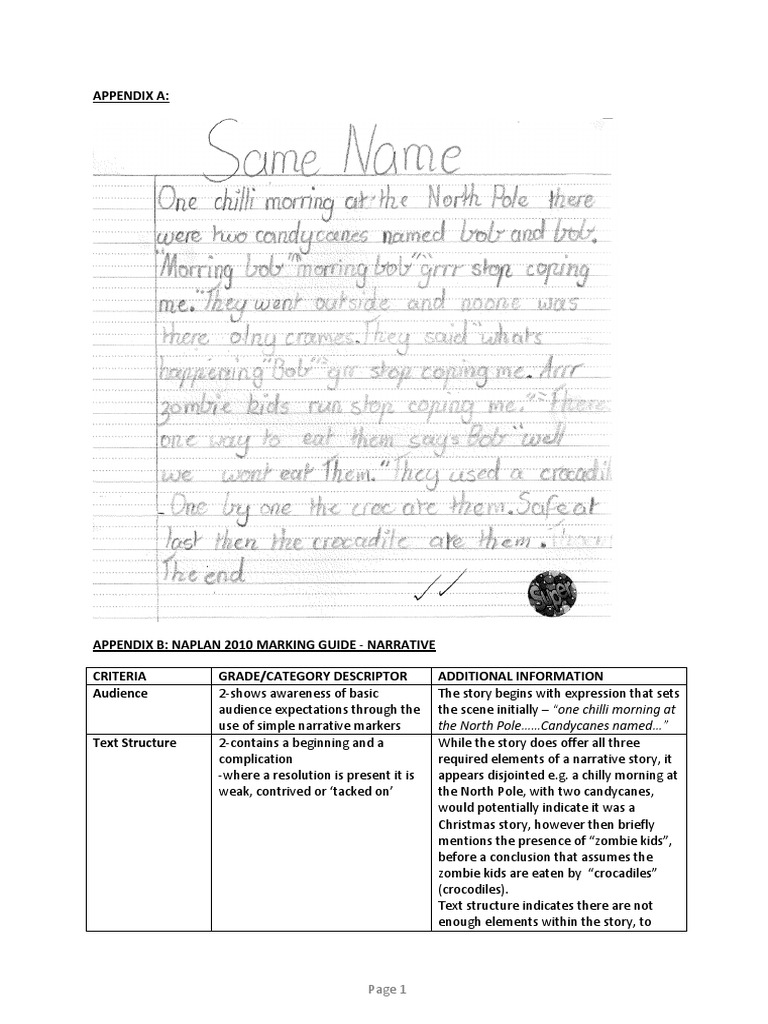 APPENDIX A:
Same Name
One chilli morring at the North Pole there
were two candycanes named bob and bob.
"Morring bob" "morring bob" "grrr stop coping
me." They went outside and noone was
there olny crames. They said "whats
happening "Bob" "grr stop coping me. Arrr
zombie kids run stop coping me." There
one way to eat them says Bob "well
we wont eat Them." They used a crocadil
. One by one the croc ate them. Safe at
last then the crocadile ate them.
The end
Super
APPENDIX B: NAPLAN 2010 MARKING GUIDE - NARRATIVE
CRITERIA GRADE/CATEGORY DESCRIPTOR ADDITIONAL INFORMATION
Audience 2-shows awareness of basic The story begins with expression that sets
audience expectations through the the scene initially – "one chilli morning at
use of simple narrative markers the North Pole……Candycanes named…"
Text Structure 2-contains a beginning and a While the story does offer all three
complication required elements of a narrative story, it
-where a resolution is present it is appears disjointed e.g. a chilly morning at
weak, contrived or 'tacked on' the North Pole, with two candycanes,
would potentially indicate it was a
Christmas story, however then briefly
mentions the presence of "zombie kids",
before a conclusion that assumes the
zombie kids are eaten by "crocadiles"
(crocodiles).
Text structure indicates there are not
enough elements within the story, to
Page 1